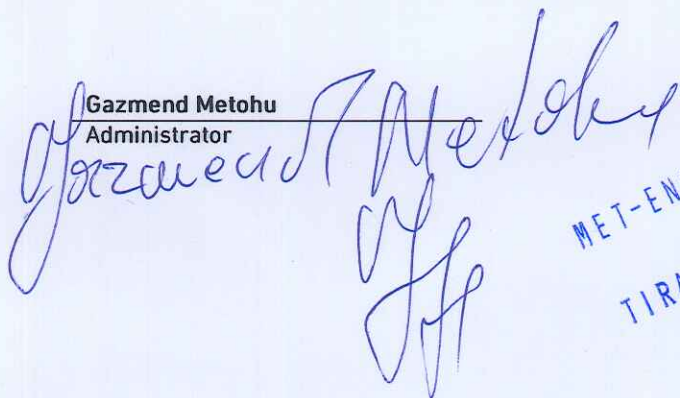 Gazmend Metohu
Administrator
Gazmend Metohu
MET-EN
TIRA